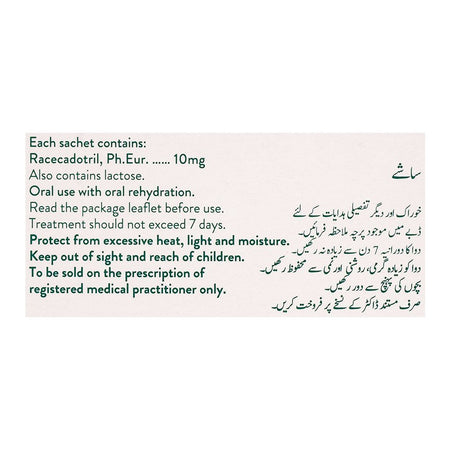 Each sachet contains:
Racecadotril, Ph.Eur. ...... 10mg
Also contains lactose.
Oral use with oral rehydration.
Read the package leaflet before use.
Treatment should not exceed 7 days.
Protect from excessive heat, light and moisture.
Keep out of sight and reach of children.
To be sold on the prescription of
registered medical practitioner only.
ساشے
خوراک اور دیگر تفصیلی ہدایات کے لئے
ڈبے میں موجود پرچہ ملاحظہ فرمائیں۔
دوا کا دورانیہ 7 دن سے زیادہ نہ رکھیں۔
دوا کو زیادہ گرمی، روشنی اور نمی سے محفوظ رکھیں۔
بچوں کی پہنچ سے دور رکھیں۔
صرف مستند ڈاکٹر کے نسخے پر فروخت کریں۔